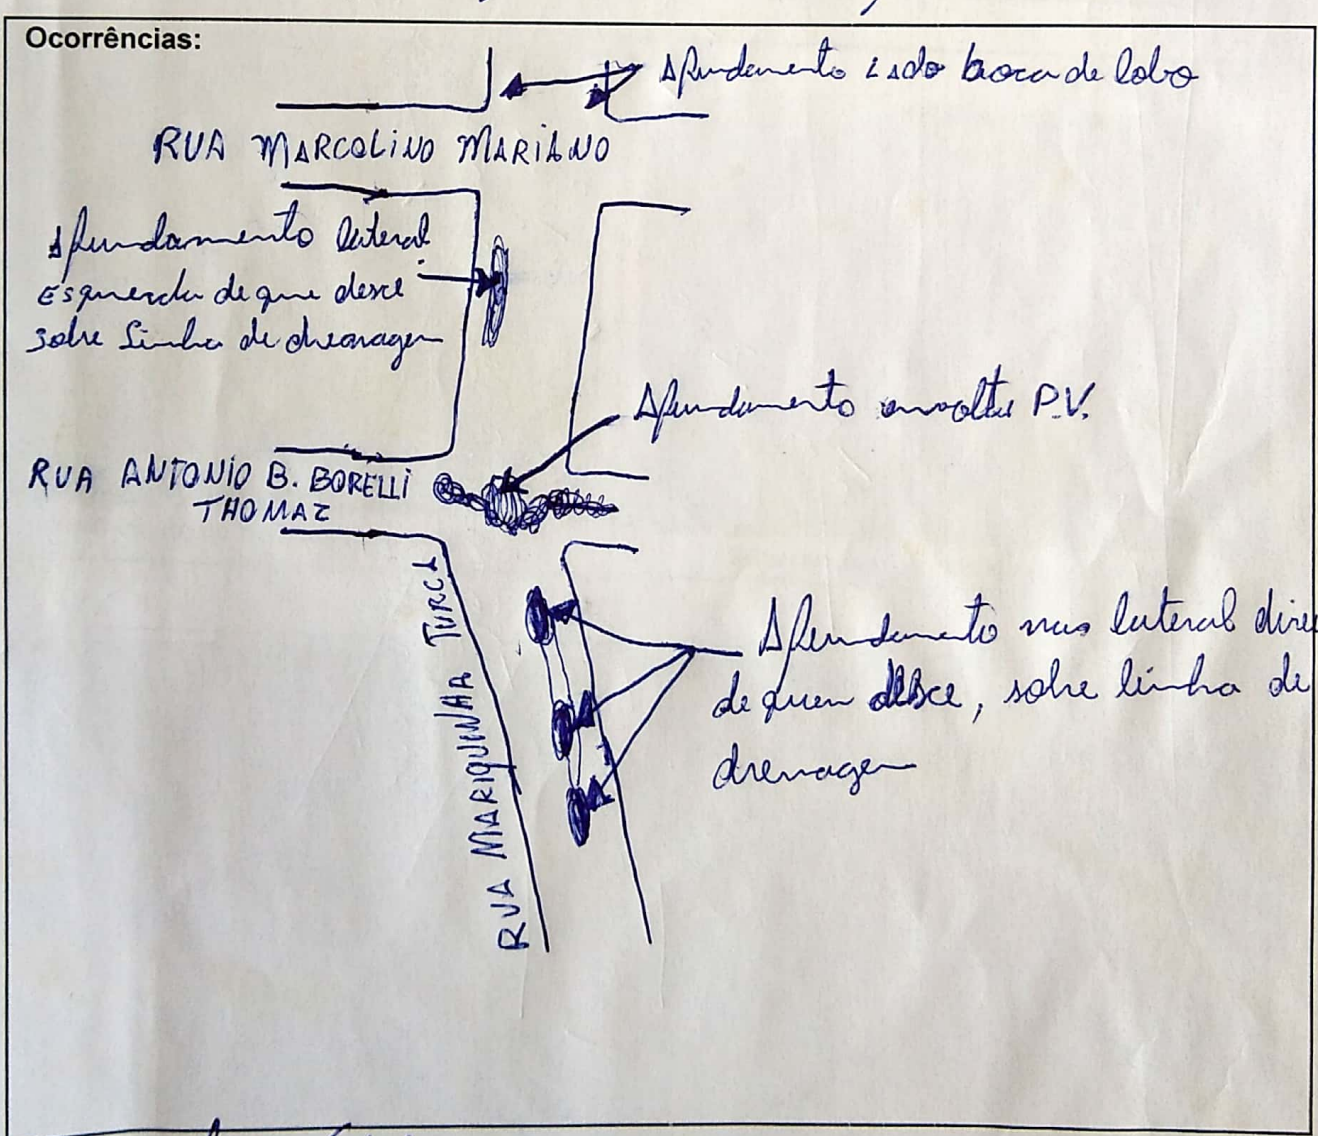 Ocorrências:
Afundamento Lado boca de lobo
RUA MARCOLINO MARIANO
Afundamento lateral
Esquerda de que desce
sobre Linha de drenagem
Afundamento envolta P.V.
RUA ANTONIO B. BORELLI
THOMAZ
RUA MARIQUINHA TURCA
Afundamento nas lateral dire
de quem desce, sobre linha de
drenagem